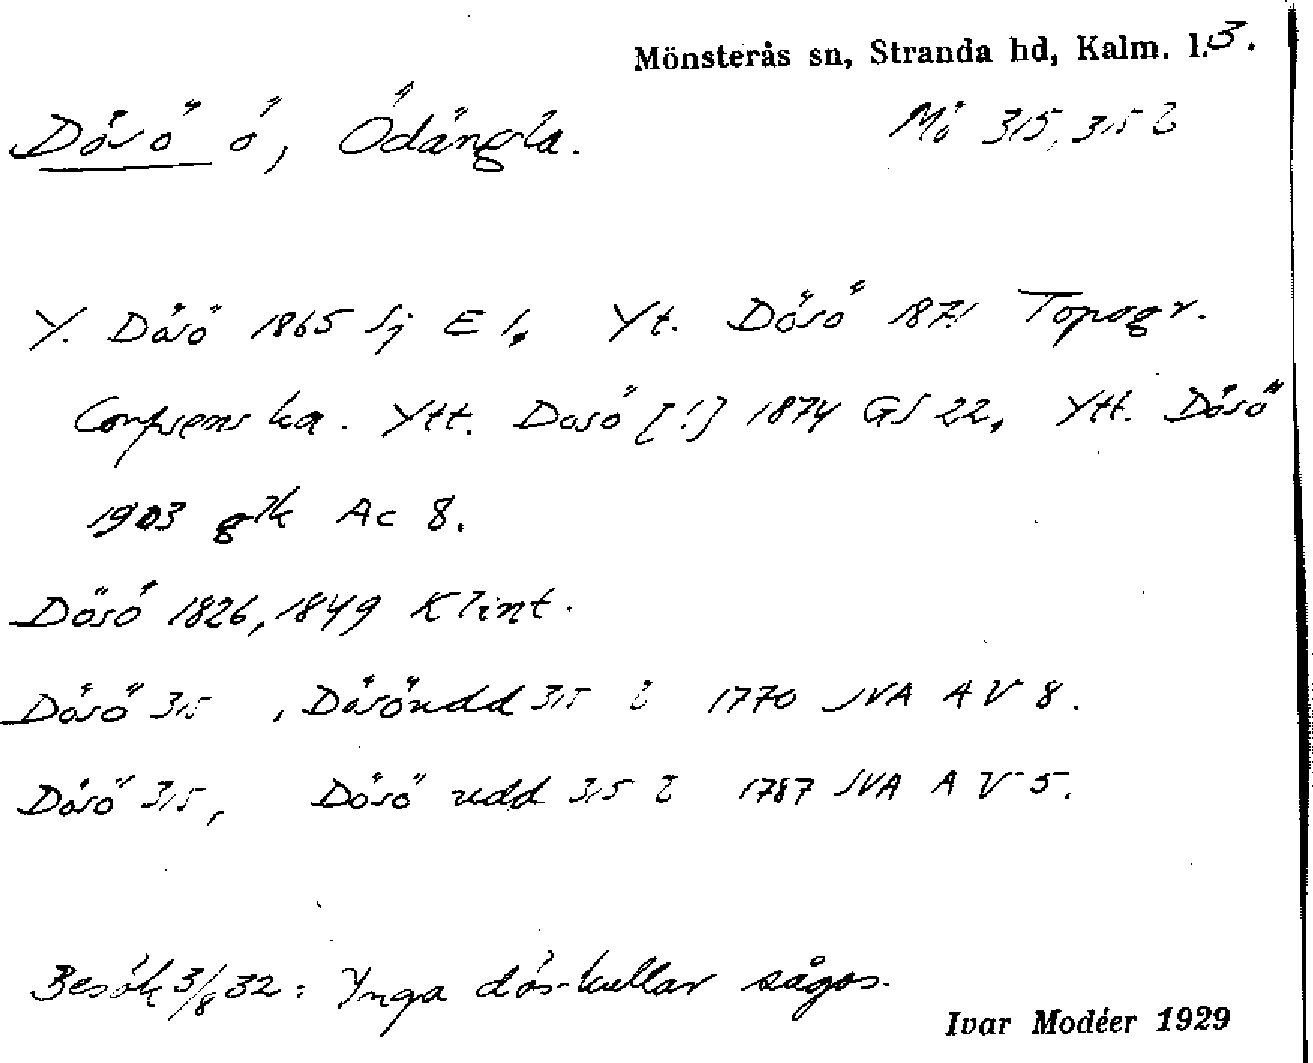 Mönsterås sn, Stranda hd, Kalm. l. 3.
Dösö ö, Ödängla. Mö 315, 315 b
Y. Dösö 1865 Sj E 1, Yt. Dösö 1871 Topogr.
Corpsens ka. Ytt. Dosö [!] 1874 GS 22, Ytt. Dösö
1903 gk Ac 8.
Dösö 1826, 1849 Klint.
Dösö 315, Dösöudd 315 b 1770 JVA A V 8.
Dösö 315, Dösö udd 315 b 1787 JVA A V 5.
Besök 3/8 32: Ynga dös-kullar sågos.
Ivar Modéer 1929